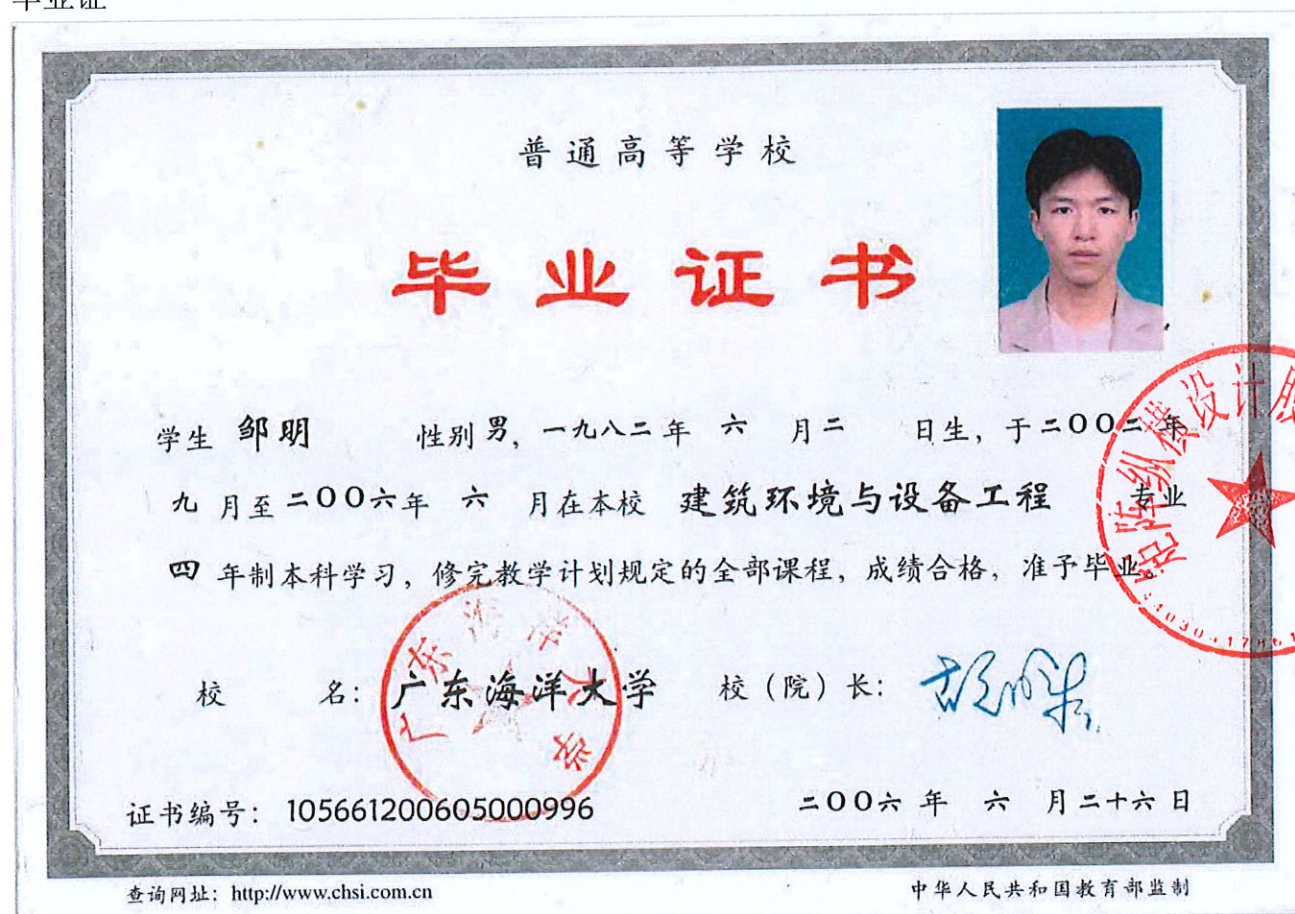 毕业证
普通高等学校
毕业证书
学生 邹明 性别 男, 一九八二 年 六 月 二 日生, 于 二〇〇二 年
九 月至 二〇〇六 年 六 月在本校 建筑环境与设备工程 专业
四 年制本科学习, 修完教学计划规定的全部课程, 成绩合格, 准予毕业。
校 名: 广东海洋大学 校(院)长:
广东海洋大学
矩阵纵横设计股
证书编号: 105661200605000996 二〇〇六 年 六 月二十六日
查询网址: http://www.chsi.com.cn 中华人民共和国教育部监制